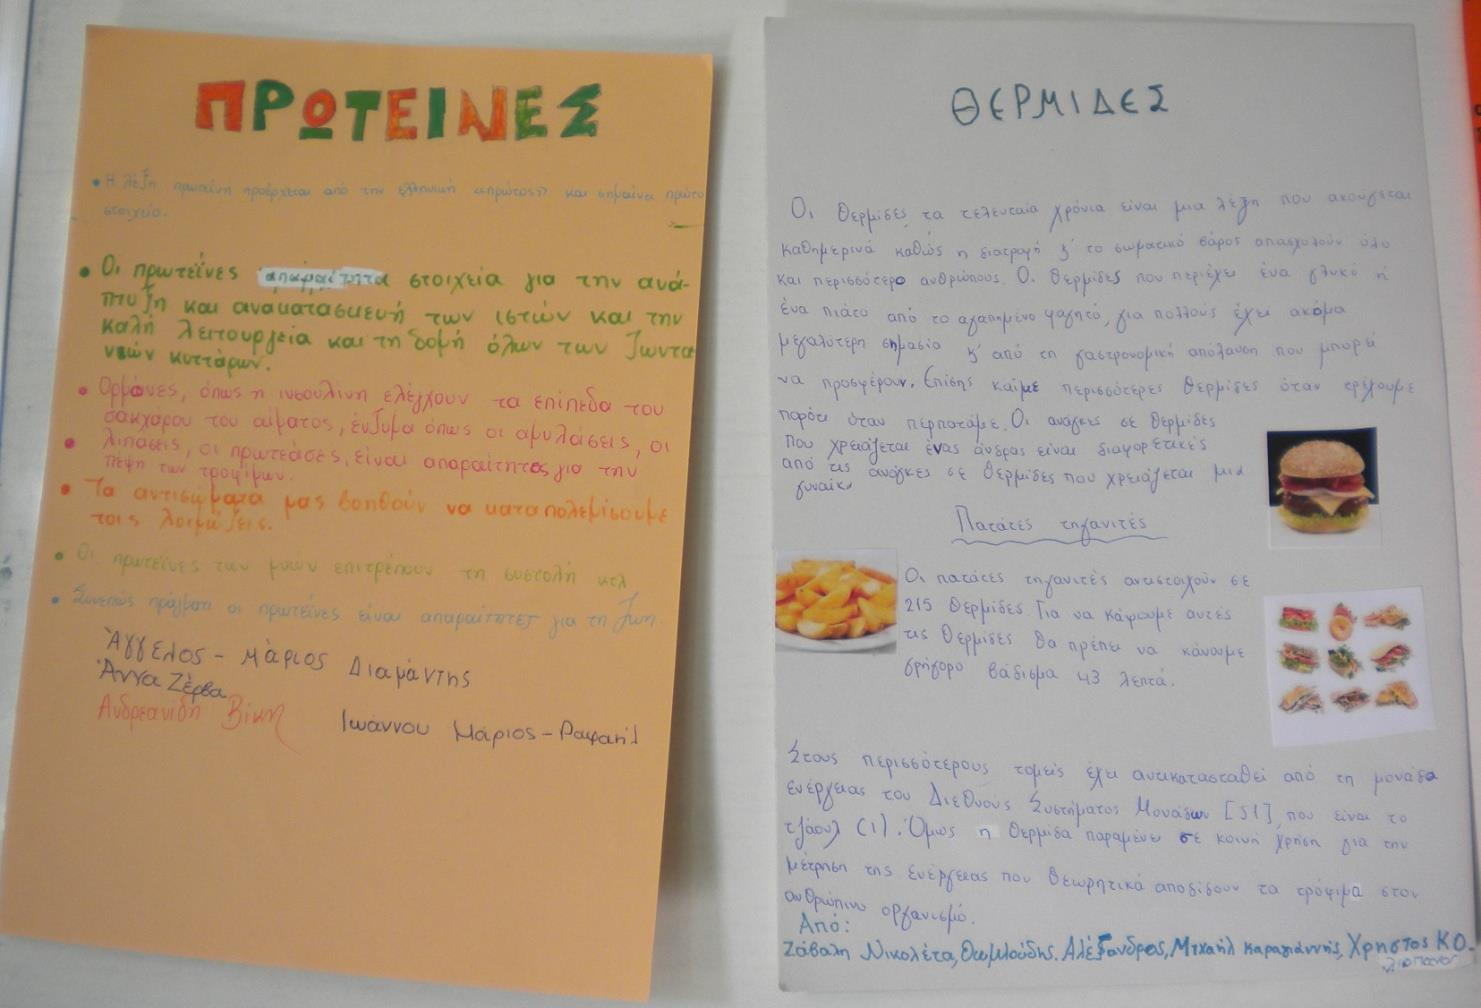 ΠΡΩΤΕΙΝΕΣ
• Η λέξη πρωτεΐνη προέρχεται από την ελληνική «πρώτος» και σημαίνει πρώτο
στοιχείο.
• Οι πρωτεΐνες απαραίτητα στοιχεία για την ανά-
πτυξη και ανακατασκευή των ιστών και την
καλή λειτουργεία και τη δομή όλων των ζωντα
νών κυττάρων.
• Ορμόνες, όπως η ινσουλίνη ελέγχουν τα επίπεδα του
σακχάρου του αίματος, ένζυμα όπως οι αμυλάσεις, οι
• λιπάσεις, οι πρωτεάσες, είναι απαραίτητος για την
πέψη των τροφίμων.
• Τα αντισώματα μας βοηθούν να καταπολεμίσουμε
τοις λοιμώξεις.
• Οι πρωτεΐνες των μυών επιτρέπουν τη συστολή κτλ
• Συνεπώς πράγματι οι πρωτεΐνες είναι απαραίτητες για τη ζωή.
Άγγελος - Μάριος Διαμάντης
Άννα Ζέρβα
Ανδρεανίδη Βίκη
Ιωάννου Μάριος - Ραφαήλ
ΘΕΡΜΙΔΕΣ
Οι θερμίδες τα τελευταία χρόνια είναι μια λέξη που ακούγεται
καθημερινά καθώς η διατροφή ϗ το σωματικό βάρος απασχολούν όλο
και περισσότερο ανθρώπους. Οι θερμίδες που περιέχει ένα γλυκό ή
ένα πιάτο από το αγαπημένο φαγητό, για πολλούς έχει ακόμα
μεγαλύτερη σημασία ϗ από τη γαστρονομική απόλαυση που μπορεί
να προσφέρουν. Επίσης καίμε περισσότερες θερμίδες όταν τρέχουμε
παρότι όταν περπατάμε. Οι ανάγκες σε θερμίδες
που χρειάζεται ένας άνδρας είναι διαφορετικές
από τις ανάγκες σε θερμίδες που χρειάζεται μια
γυναίκα
Πατάτες τηγανιτές
Οι πατάτες τηγανιτές αντιστοιχούν σε
215 θερμίδες. Για να κάψουμε αυτές
τις θερμίδες θα πρέπει να κάνουμε
γρήγορο βάδισμα 43 λεπτά.
Στους περισσότερους τομείς έχει αντικατασταθεί από τη μονάδα
ενέργειας του Διεθνούς Συστήματος Μονάδων [S1], που είναι το
τζάουλ (1). Όμως η θερμίδα παραμένει σε κοινή χρήση για την
μέτρηση της ενέργειας που θεωρητικά αποδίδουν τα τρόφιμα στον
ανθρώπινο οργανισμό.
Από:
Ζάβαλη Νικολέτα, Αλέξανδρος, Μιχαήλ Καραγιάννης, Χρήστος ΚΟ-